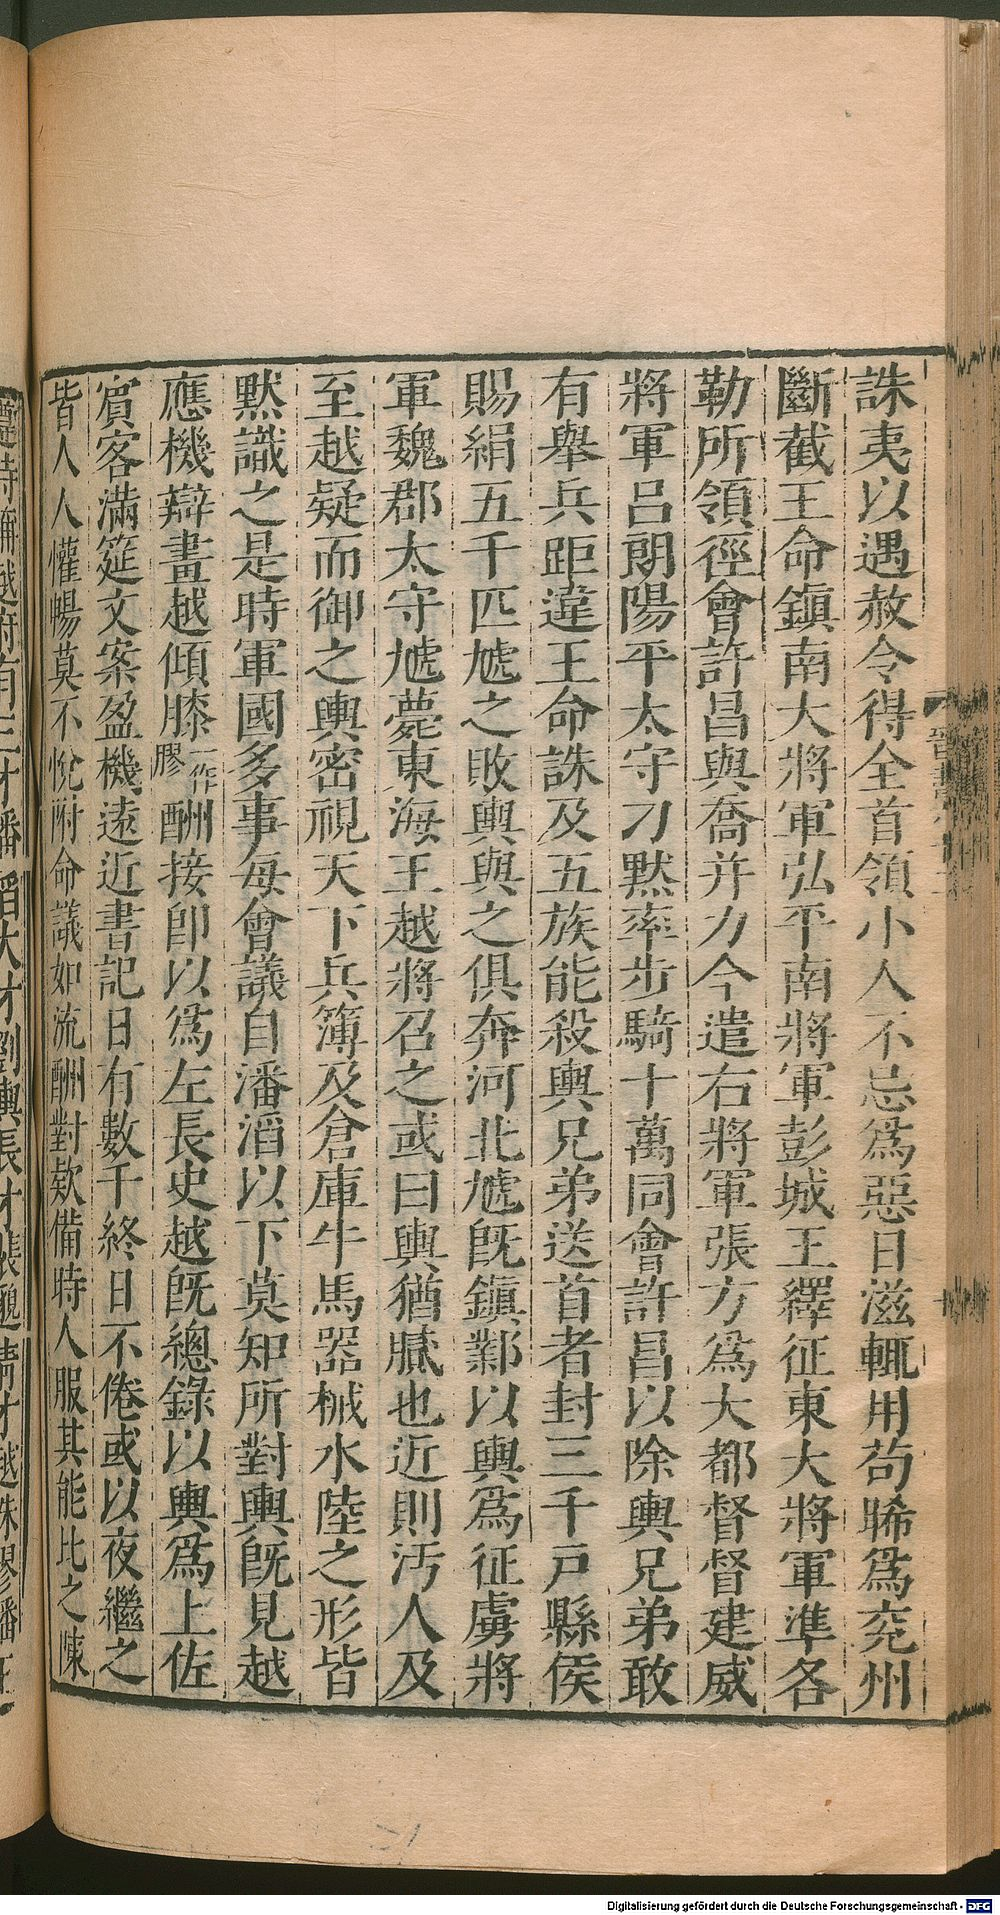 誅夷以遇赦令得全首領小人不忌爲惡日滋輒用苟晞爲兖州
斷截王命鎭南大將軍弘平南將軍彭城王繹征東大將軍準各
勒所領徑會許昌與喬并力今遣右將軍張方爲大都督督建威
將軍呂朗陽平太守刁默率步騎十萬同會許昌以除輿兄弟敢
有舉兵距違王命誅及五族能殺輿兄弟送首者封三千戶縣侯
賜絹五千匹虓之敗輿與之俱奔河北虓旣鎭鄴以輿爲征虜將
軍魏郡太守虓薨東海王越將召之或曰輿猶膩也近則汚人及
至越疑而御之輿密視天下兵簿及倉庫牛馬器械水陸之形皆
默識之是時軍國多事每會議自潘滔以下莫知所對輿旣見越
應機辯畫越傾膝一作膠酬接卽以爲左長史越旣總錄以輿爲上佐
賓客滿筵文案盈機遠近書記日有數千終日不倦或以夜繼之
皆人人懽暢莫不悅附命議如流酬對欵備時人服其能比之陳
Digitalisierung gefördert durch die Deutsche Forschungsgemeinschaft - DFG